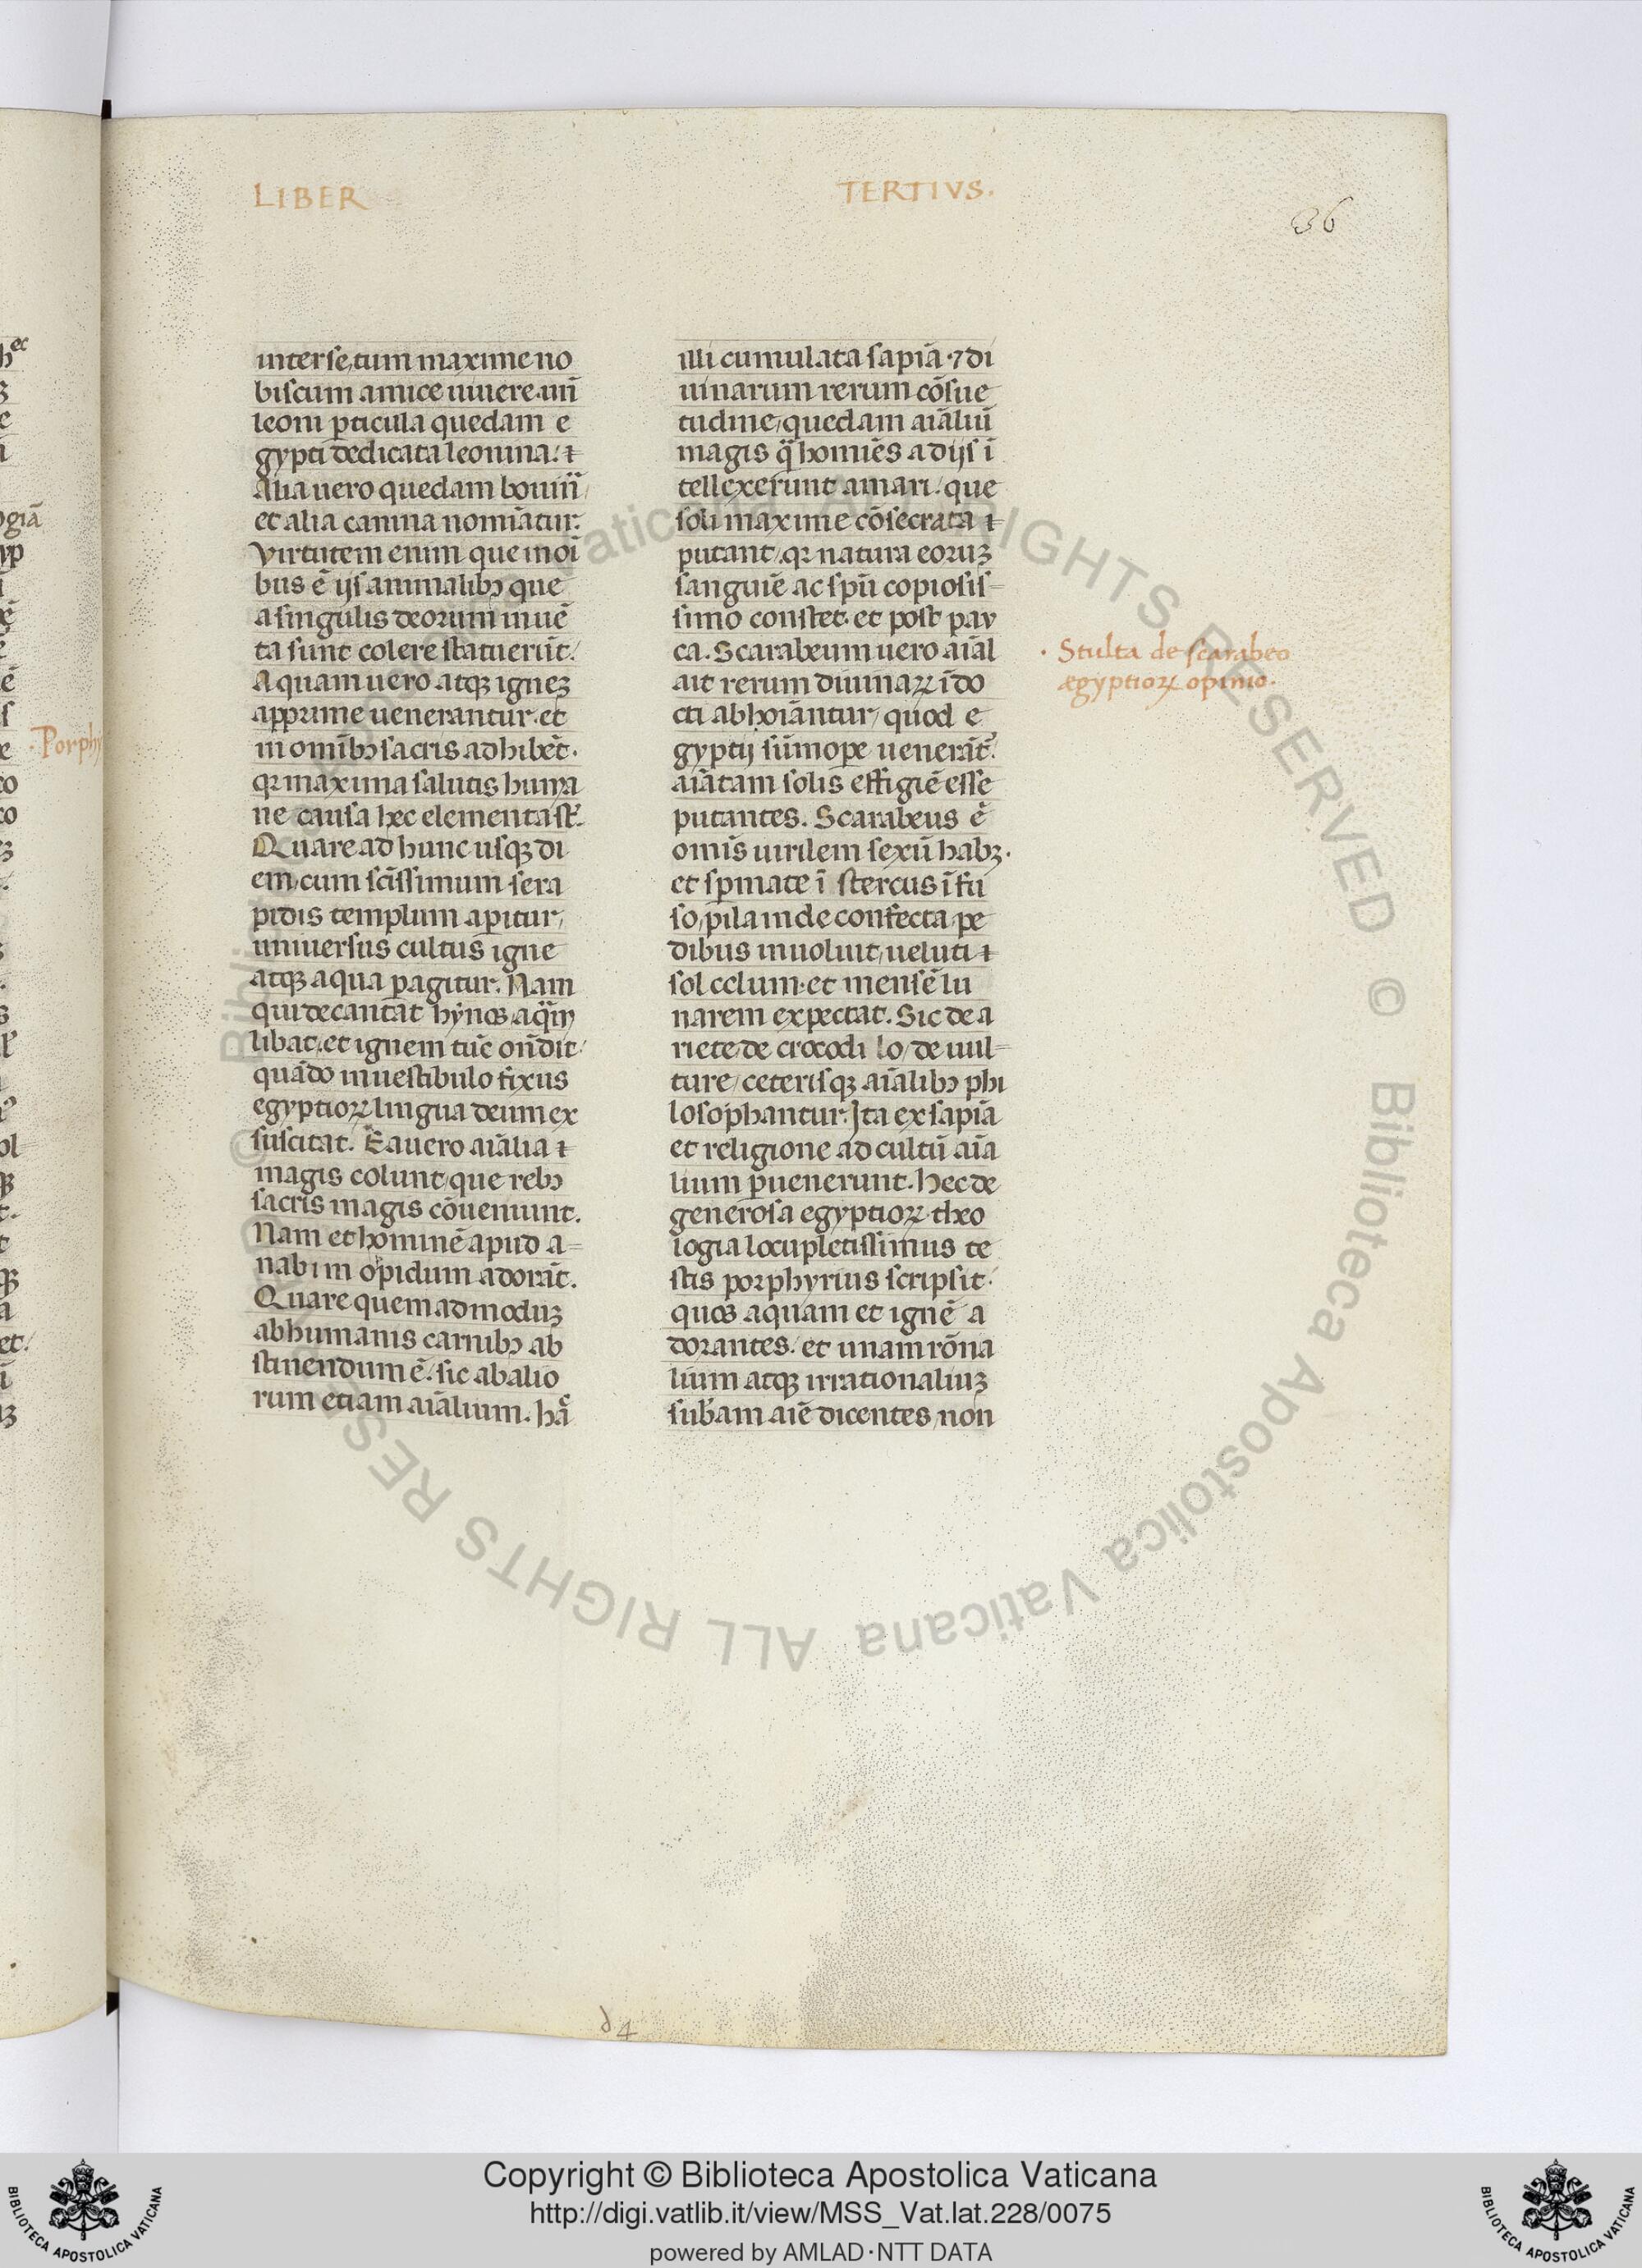 LIBER TERTIVS.
36
inter se, tum maxime no
biscum amice uiuere. uñ
leoni ꝑticula quedam e
gypti dedicata leonina: ⁊
Alia uero quedam bouin̄,
et alia canina nomīatur.
Virtutem enim que in oī
bus ē ijs animalibꝫ que
a singulis deorum inuē
ta sunt colere statuerūt.
Aquam uero atqꝫ igneꝫ
apprime uenerantur. et
in omībꝫ sacris adhibēt.
qꝛ maxima salutis huma
ne causa hec elementa st̄.
Quare ad hunc usqꝫ di
em, cum sc̄issimum sera
pidis templum aperitur,
uniuersus cultus igne
atqꝫ aqua ꝑagitur. Nam
qui decantat hȳnos, aq̄m
libat, et ignem tūc ōndit,
quādo in uestibulo fixus
egyptioꝝ lingua deum ex
suscitat. Ea uero aīalia ⁊
magis colunt, que rebꝫ
sacris magis cōueniunt.
Nam et hominē apud a=
nabim opidum adorāt.
Quare quemadmoduꝫ
ab humanis carnibꝫ ab
stinendum ē, sic ab alio
rum etiam aīalium. hāc
illi cumulata sapīa ⁊ di
uinarum rerum cōsue
tudine, quedam aīaliū
magis q̄ homiēs a dijs ī
tellexerunt amari. que
soli maxime cōsecrata ⁊
putant, qꝛ natura eoruꝫ
sanguiē ac spū copiosis=
simo constet. et post pau
ca. Scarabeum uero aīal
ait rerum diuinaꝝ īdo
cti abhoīantur, quod e
gyptij sūmope uenerāt.
aīatam solis effigiē esse
putantes. Scarabeus ē
omīs uirilem sexū habꝫ.
et spmate ī stercus īfu
so, pila inde confecta pe
dibus inuoluit, ueluti ⁊
sol celum. et mensē lu
narem expectat. Sic de a
riete, de crocodi lo, de uul=
ture, ceterisqꝫ aīalibꝫ phi
losophantur. Ita ex sapīa
et religione ad cultū aīa
lium ꝑuenerunt. hec de
generosa egyptioꝝ theo
logia locupletissimus te
stis porphyrius scripsit.
quos aquam et ignē a
dorantes, et unam rōna
lium atqꝫ irrationaliuꝫ
sub̄am aīe dicentes, non
· Stulta de scarabeo
ægyptioꝝ opinio.
·Porphy
d4
Copyright © Biblioteca Apostolica Vaticana
http://digi.vatlib.it/view/MSS_Vat.lat.228/0075
powered by AMLAD·NTT DATA
BIBLIOTECA APOSTOLICA VATICANA
BIBLIOTECA APOSTOLICA VATICANA
© Biblioteca Apostolica Vaticana ALL RIGHTS RESERVED © Biblioteca Apostolica Vaticana ALL RIGHTS RESERVED